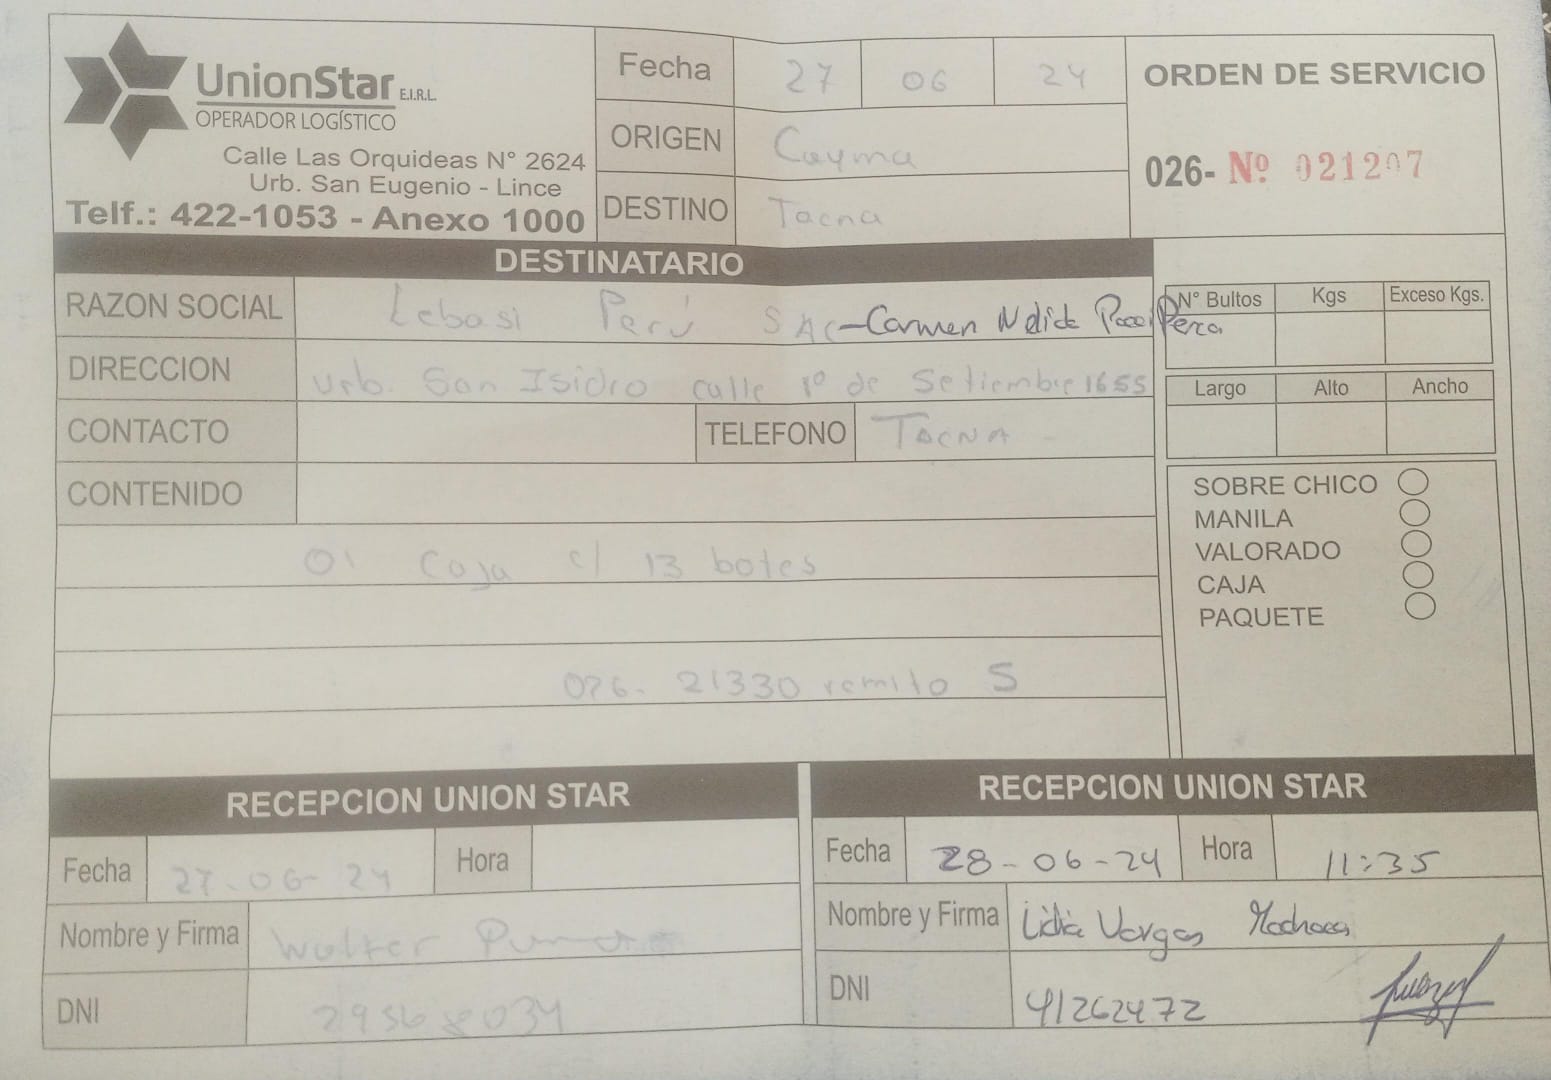 UnionStar E.I.R.L.
OPERADOR LOGÍSTICO
Calle Las Orquideas N° 2624
Urb. San Eugenio - Lince
Telf.: 422-1053 - Anexo 1000
Fecha 27 06 24
ORIGEN Cayma
DESTINO Tacna
ORDEN DE SERVICIO
026- Nº 021207
DESTINATARIO
RAZON SOCIAL Lebasi Perú SAC-Carmen Nelida
DIRECCION Urb. San Isidro calle 1º de Setiembre 1655
CONTACTO TELEFONO TACNA
CONTENIDO
01 Caja c/ 13 botes
026- 21330 remito S
N° Bultos Kgs Exceso Kgs.
Largo Alto Ancho
SOBRE CHICO
MANILA
VALORADO
CAJA
PAQUETE
RECEPCION UNION STAR
Fecha 27-06-24 Hora
Nombre y Firma Walter
DNI
RECEPCION UNION STAR
Fecha 28-06-24 Hora 11:35
Nombre y Firma Lidia Vargas
DNI 41262472